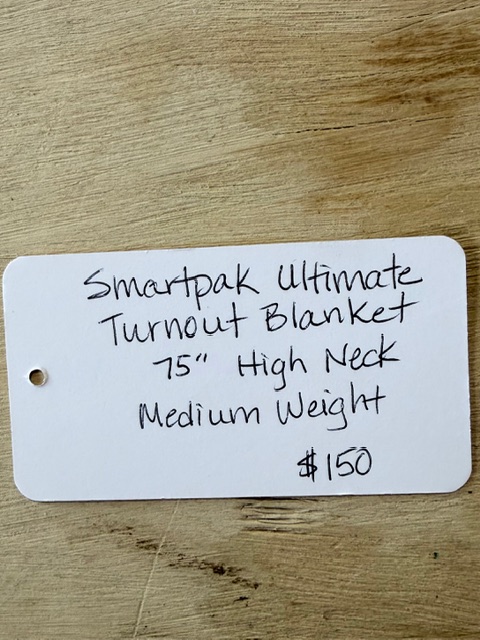 Smartpak Ultimate
Turnout Blanket
75" High Neck
Medium Weight
$150